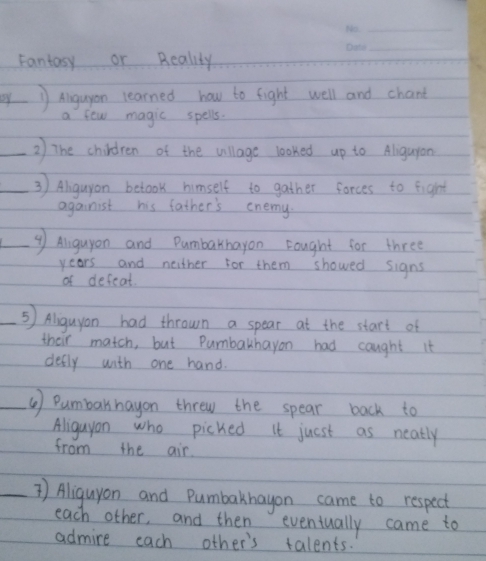 No.
Date
Fantasy or Reality
1) Aliguyon learned how to fight well and chant
a few magic spells.
2) The children of the village looked up to Aliguyon
3) Aliguyon betook himself to gather forces to fight
againist his father's enemy.
4) Aliguyon and Pumbakhayon fought for three
years and neither for them showed signs
of defeat.
5) Aliguyon had thrown a spear at the start of
their match, but Pumbakhayon had caught it
defly with one hand.
6) Pumbakhayon threw the spear back to
Aliguyon who picked it jucst as neatly
from the air.
7) Aliguyon and Pumbakhayon came to respect
each other, and then eventually came to
admire each other's talents.